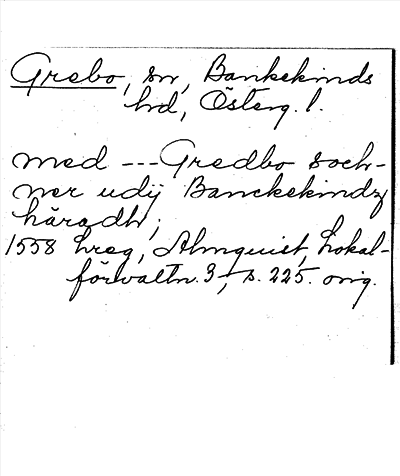 Grebo, sn, Bankekinds
hd, Österg. l.
med --- Gredbo soch-
ner udij Banckekindz
häradh;
1558 Lreg, Almquist, Lokal-
förvaltn. 3, s. 225. orig.